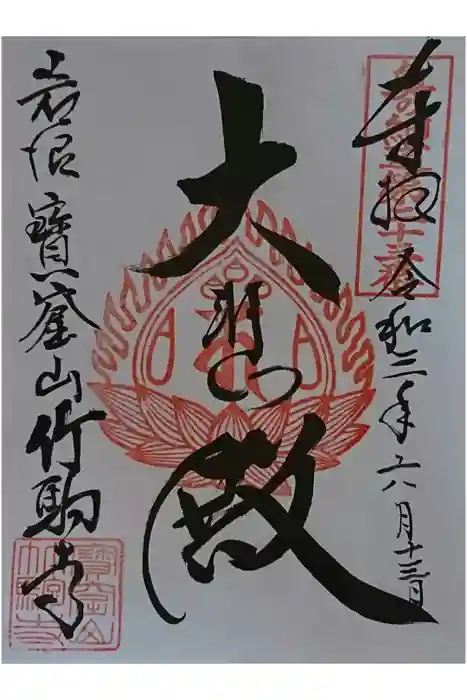 奉拝 令和三年六月十三日
大悲殿
岩沼 寶窟山竹駒寺